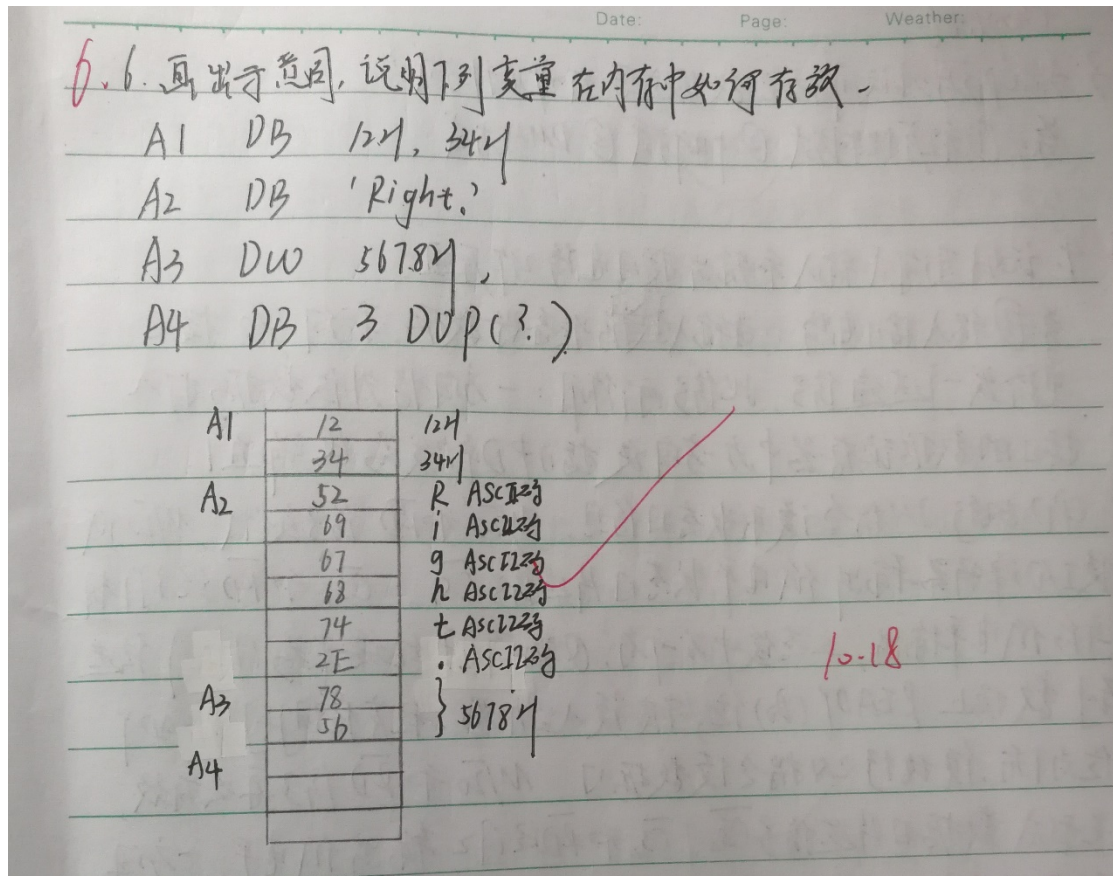 Date: Page: Weather:
6.6. 画出示意图,说明下列变量在内存中如何存放.
A1 DB 12H, 34H
A2 DB 'Right.'
A3 DW 5678H
A4 DB 3 DUP(?)
A1 12 12H
34 34H
A2 52 R ASCII码
69 i ASCII码
67 g ASCII码
68 h ASCII码
74 t ASCII码
2E . ASCII码
A3 78 } 5678H
56
A4
10.18